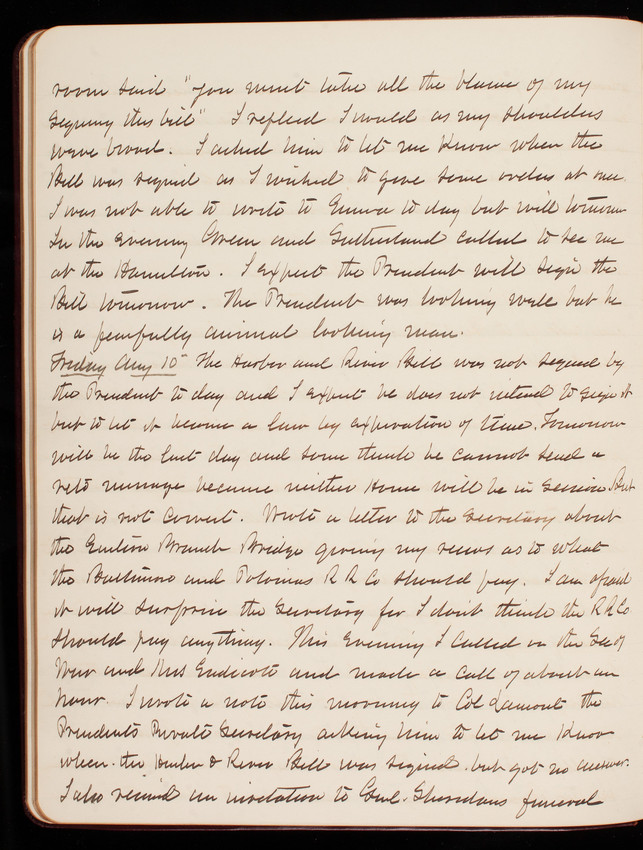 room said "you must take all the blame of my
signing this bill" I replied I would as my shoulders
were broad. I asked him to let me know when the
Bill was signed as I wished to give some orders at once
I was not able to write to Emma to day but will tomorrow
In the evening Green and Sutherland called to see me
at the Hamilton. I expect the President will sign the
Bill tomorrow. The President was looking well but he
is a fearfully animal looking man.
Friday Aug 10" The Harbor and River Bill was not signed by
the President to day and I expect he does not intend to sign it
but to let it become a law by expiration of time. Tomorrow
will be the last day and some think he cannot send a
veto message because neither House will be in session. But
that is not correct. Wrote a letter to the Secretary about
the Eastern Branch Bridge giving my views as to what
the Baltimore and Potomac R R Co should pay. I am afraid
it will surprise the Secretary for I don't think the R R Co
should pay anything. This evening I called on the Sec of
War and Mrs Endicott and made a call of about an
hour. I wrote a note this morning to Col Lamont the
Presidents Private Secretary asking him to let me know
when the Harbor & River Bill was signed. but got no answer.
I also received an invitation to Genl. Sheridans funeral